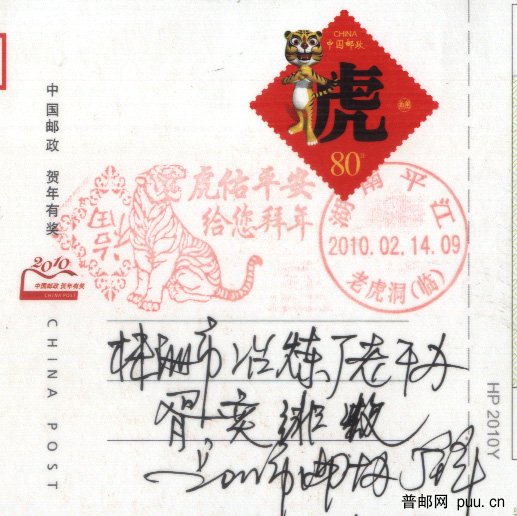 CHINA
中国邮政
虎
80分
中国邮政 贺年有奖
虎佑平安
给您拜年
湖南平江
2010.02.14.09
老虎洞(临)
2010
中国邮政 贺年有奖
CHINA POST
CHINA POST
株洲市冶炼厂老干办
HP 2010Y
普邮网 puu.cn